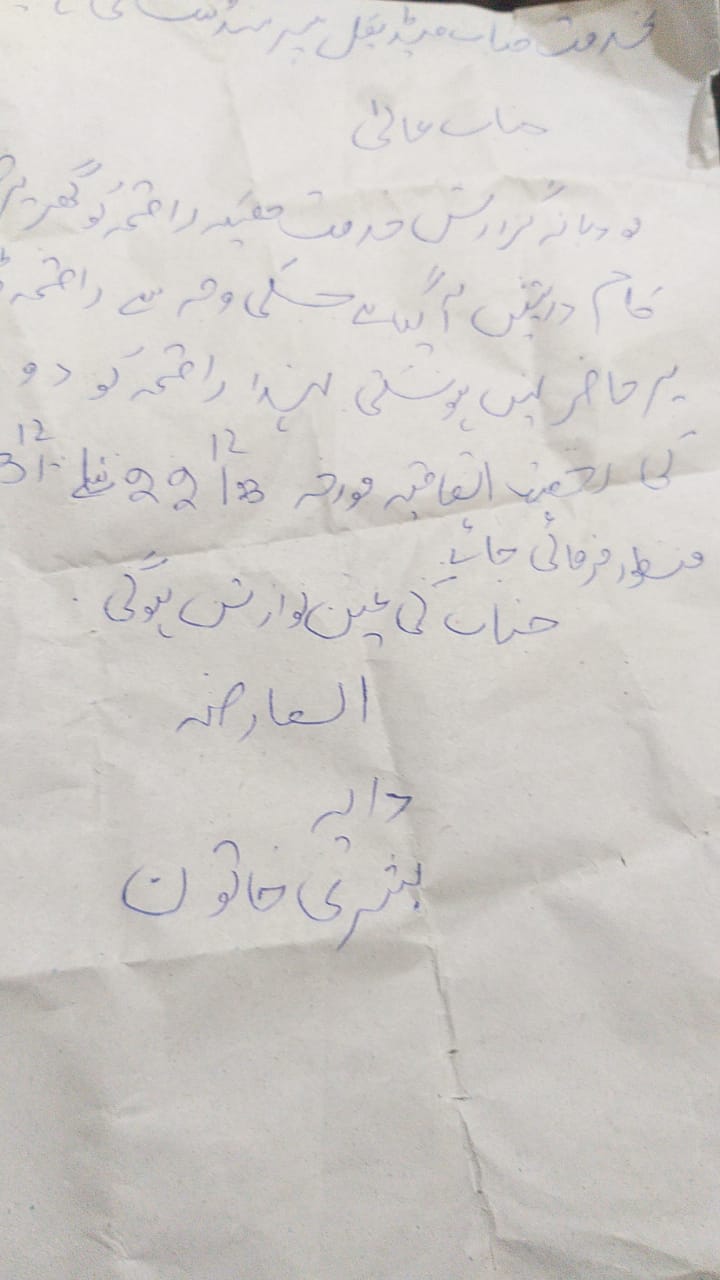 بخدمت جناب میڈیکل سپرنٹنڈنٹ
جناب عالی
مودبانہ گزارش خدمت میکہ راقمہ کو گھریلو
کام درپیش آ گیا ہے جسکی وجہ سے راقمہ
پر حاضر نہیں ہو سکتی لہذا راقمہ کو دو
کی رخصت اتفاقیہ مورخہ
منظور فرمائی جائے
جناب کی عین نوازش ہوگی.
العارضہ
دایہ
بشریٰ خاتون